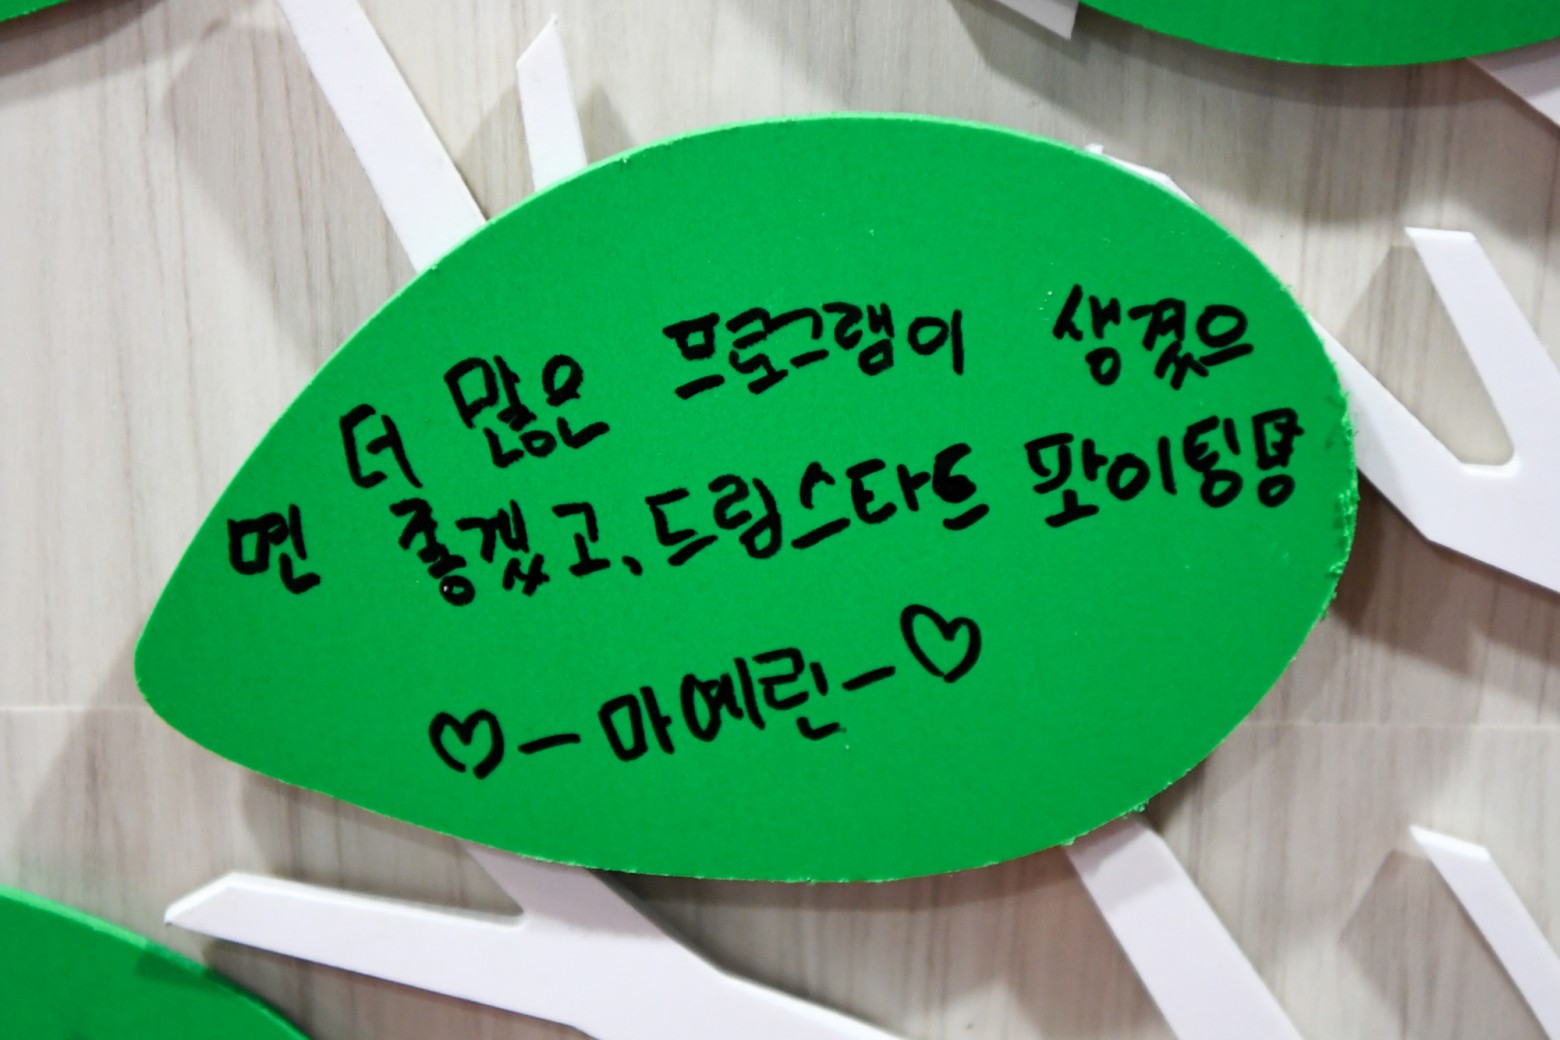 더 많은 프로그램이 생겼으
면 좋겠고, 드림스타트 파이팅
♡-마예린-♡